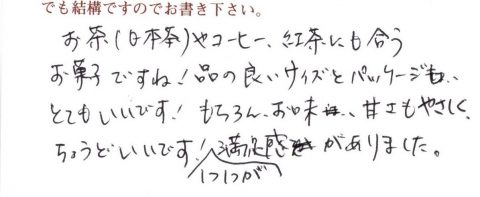 でも結構ですのでお書き下さい。
お茶(日本茶)やコーヒー、紅茶にも合う
お菓子ですね!品の良いサイズとパッケージも、
とてもいいです!もちろん、お味も、甘さもやさしく、
ちょうどいいです!満足感がありました。
1つ1つが